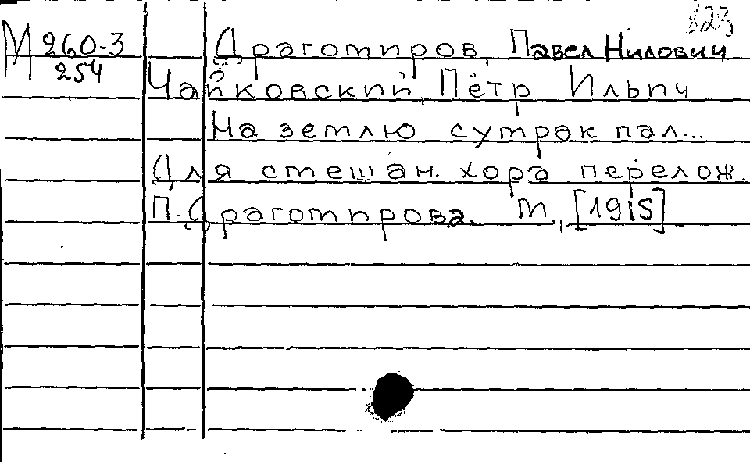 323
М 260-3 Драгомиров, Павел Нилович
254 Чайковский, Пётр Ильич
На землю сумрак пал...
Для смешан. хора перелож.
П. Драгомирова. М., [1915]